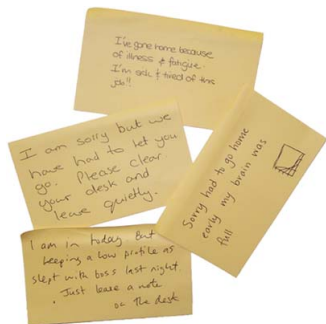 I've gone home because
of illness & fatigue
I'm sick & tired of this
job!!
I am sorry but we
have had to let you
go. Please clear
your desk and
leave quietly.
Sorry had to go home
early my brain was
full
I am in today But
keeping a low profile as
slept with boss last night
. Just leave a note
on The desk